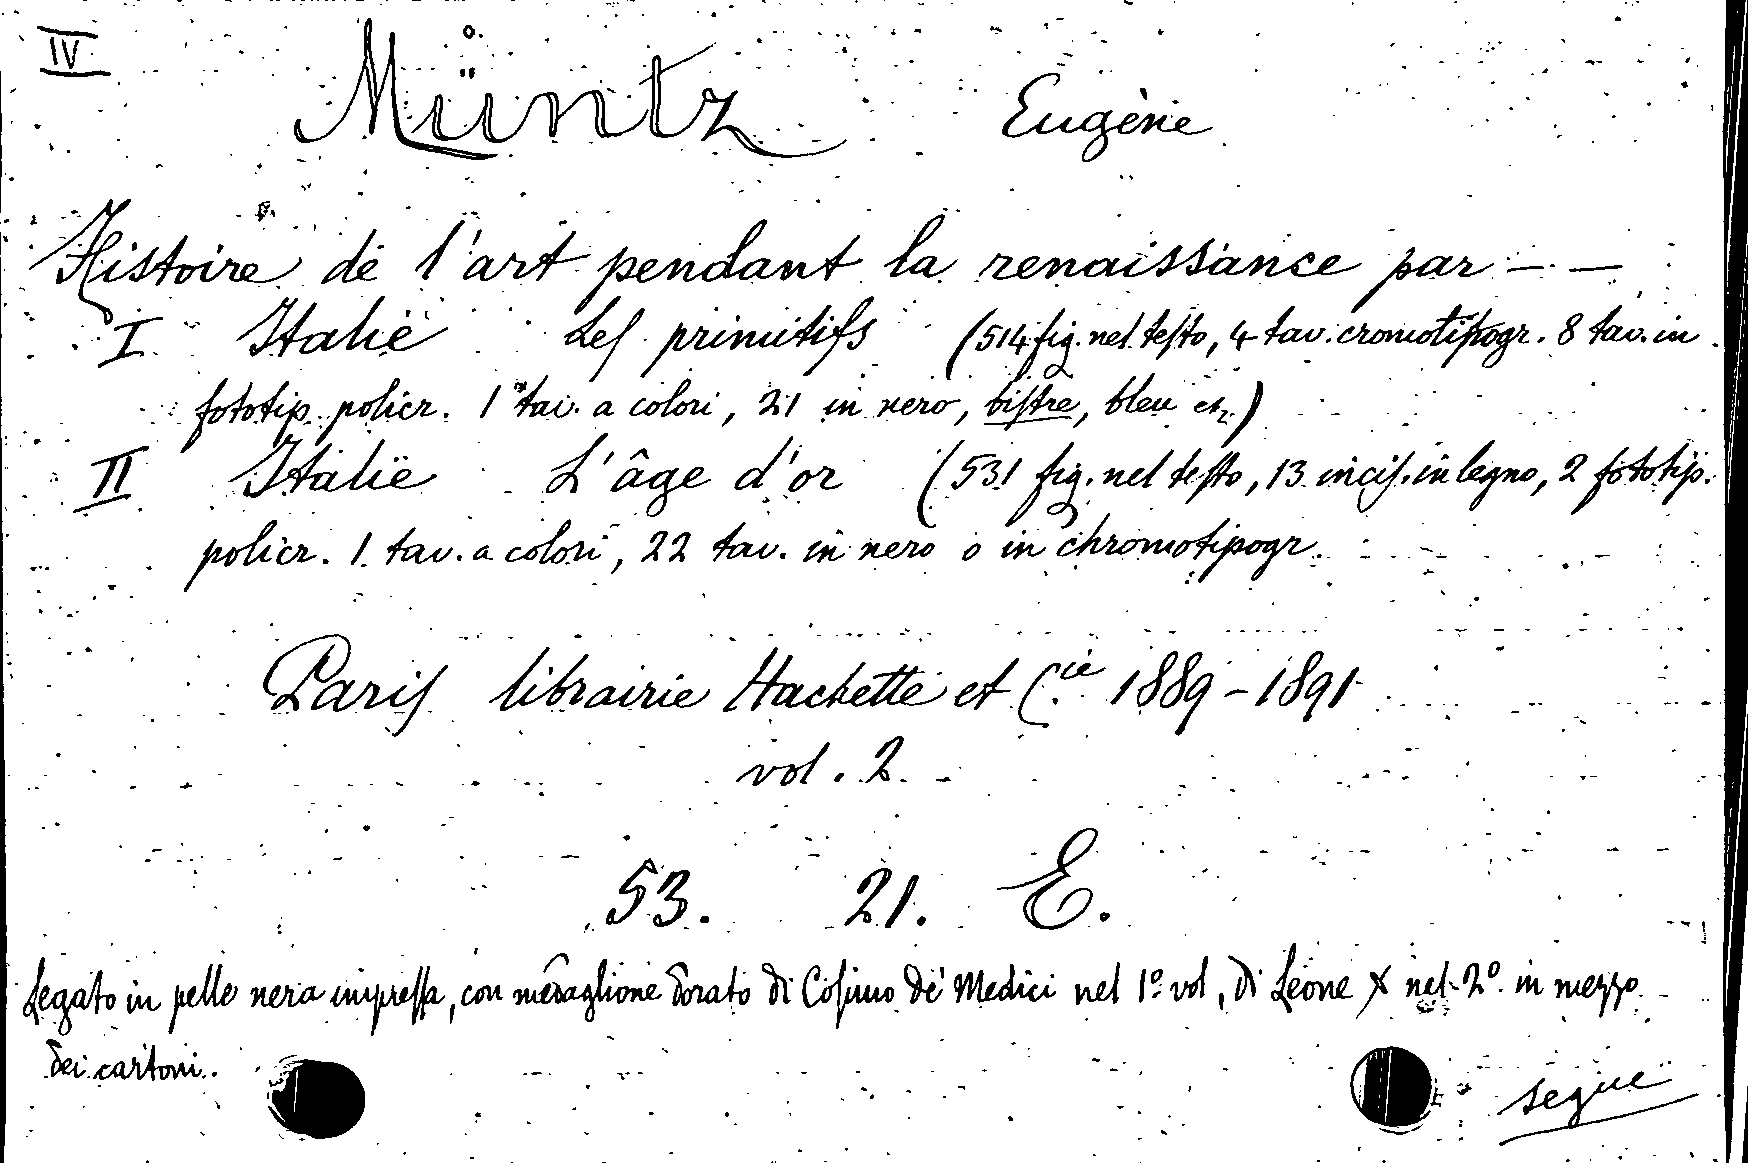 IV
Müntz Eugène
Histoire de l'art pendant la renaissance par — —
I Italie Les primitifs (514 fig. nel testo, 4 tav. cromotipogr. 8 tav. in
fototip. policr. 1 tav. a colori, 21 in nero, bistre, bleu etc)
II Italie L'âge d'or (531 fig. nel testo, 13 incis. in legno, 2 fototip.
policr. 1 tav. a colori, 22 tav. in nero o in chromotipogr.
Paris librairie Hachette et Cie 1889-1891
vol. 2
53. 21. E.
Legato in pelle nera impressa, con medaglione dorato di Cosimo de' Medici nel 1º vol, di Leone X nel 2º. in mezzo
dei cartoni.
segue